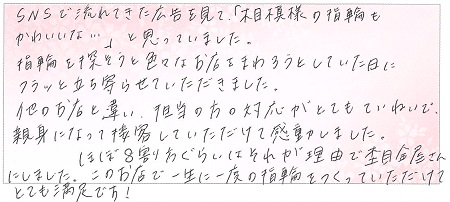 SNSで流れてきた広告を見て、「木目模様の指輪も
かわいいな…」と思っていました。
指輪を探そうと色々なお店をまわろうとしていた日に
フラッと立ち寄らせていただきました。
他のお店と違い、担当の方の対応がとてもていねいで、
親身になって接客していただけて感動しました。
ほぼ8割方ぐらいはそれが理由で杢目金屋さん
にしました。このお店で一生に一度の指輪をつくっていただけて
とても満足です!